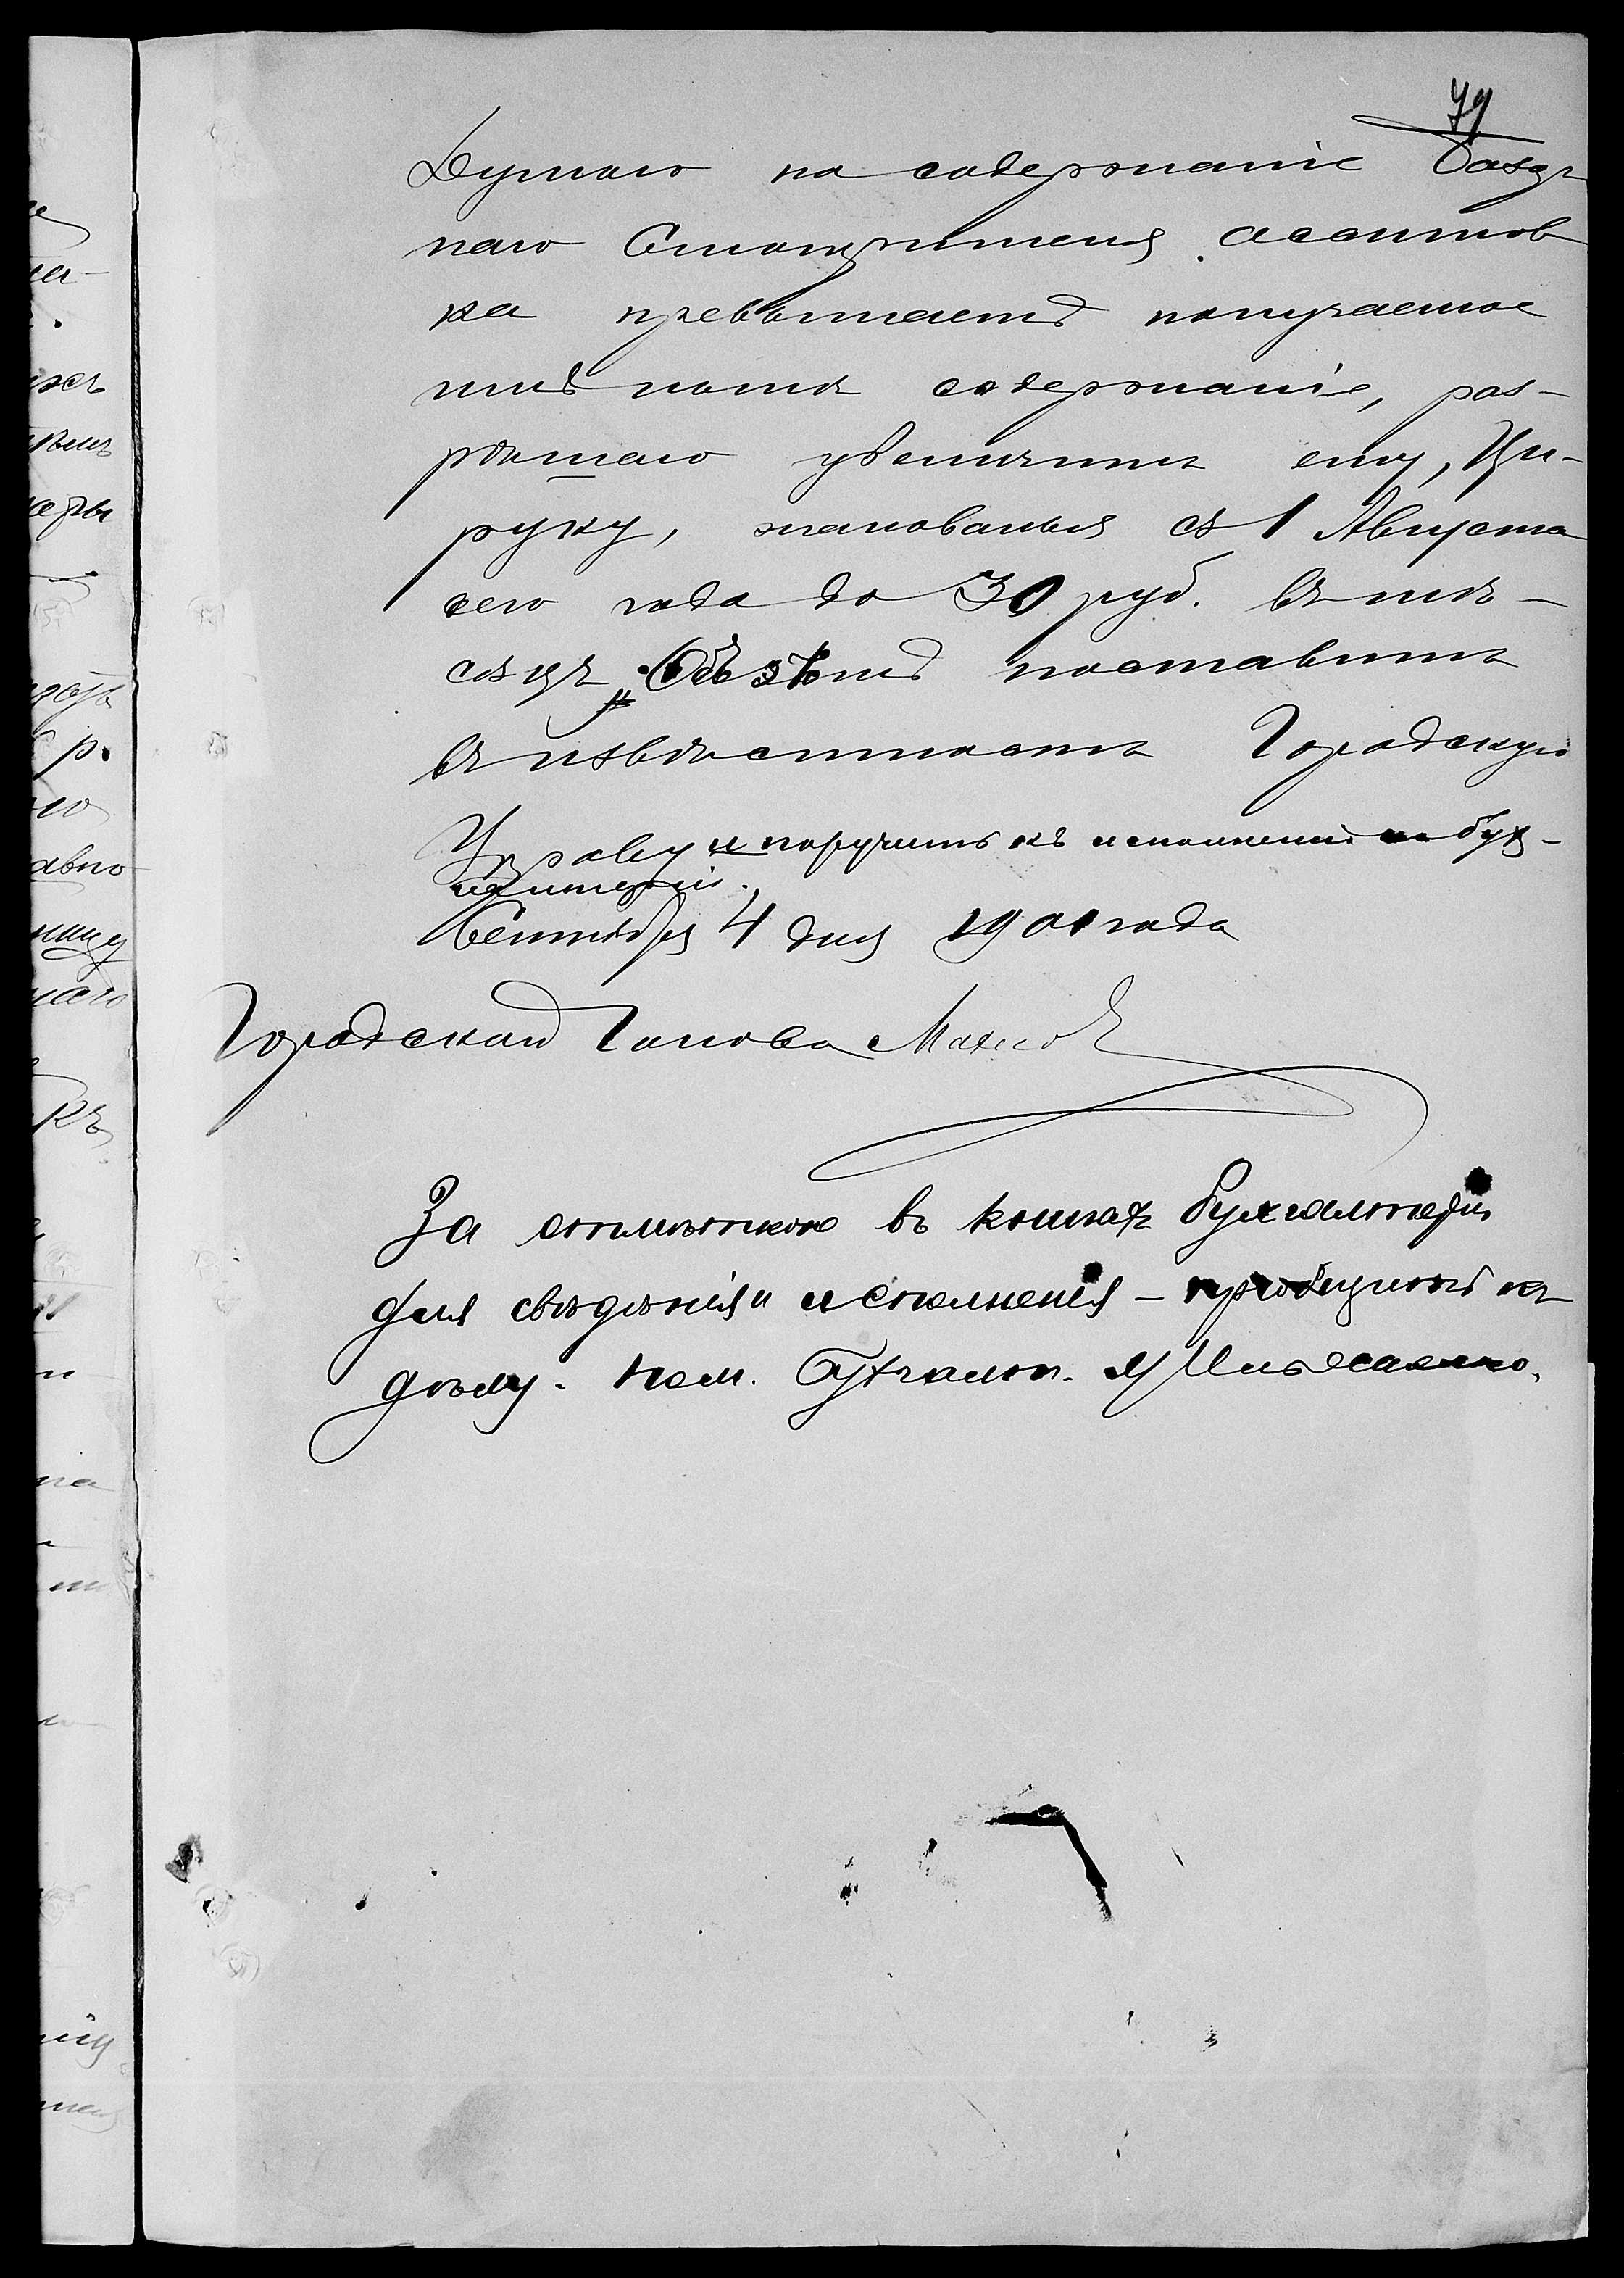 79
Думою на содержаніе базар
наго Смотрителя ассигнов
ка превышаетъ получаемое
имъ нынѣ содержаніе, раз-
рѣшаю увеличить ему, Ци-
руку, жалованья съ 1 Августа
сего года до 30 руб. въ мѣ-
сяцъ. Объ этомъ поставить
въ извѣстность Городскую
Управу и поручить къ исполненію бух-
галтеріи.
Сентября 4 дня 1901 года
Городской Голова
За отмѣткою въ книгахъ бухгалтеріи
для свѣдѣнія и исполненія - пріобщить къ
дѣлу. Пом. Бухгалт.